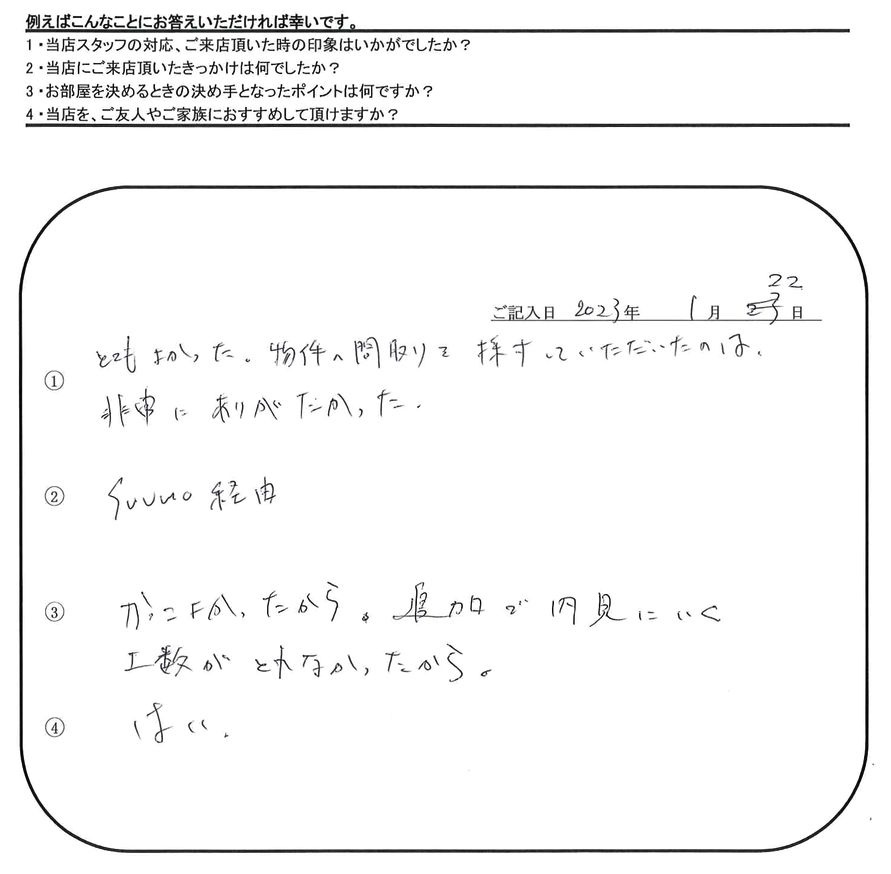 例えばこんなことにお答えいただければ幸いです。
1・当店スタッフの対応、ご来店頂いた時の印象はいかがでしたか？
2・当店にご来店頂いたきっかけは何でしたか？
3・お部屋を決めるときの決め手となったポイントは何ですか？
4・当店を、ご友人やご家族におすすめして頂けますか？
ご記入日 2023年 1月 22日
① とてもよかった。物件の間取りを 探すしていただいたのは、
非常に ありがたかった.
② Suumo 経由
③ かっこよかったから。追加で 内見にいく
工数が とれなかったから。
④ はい.